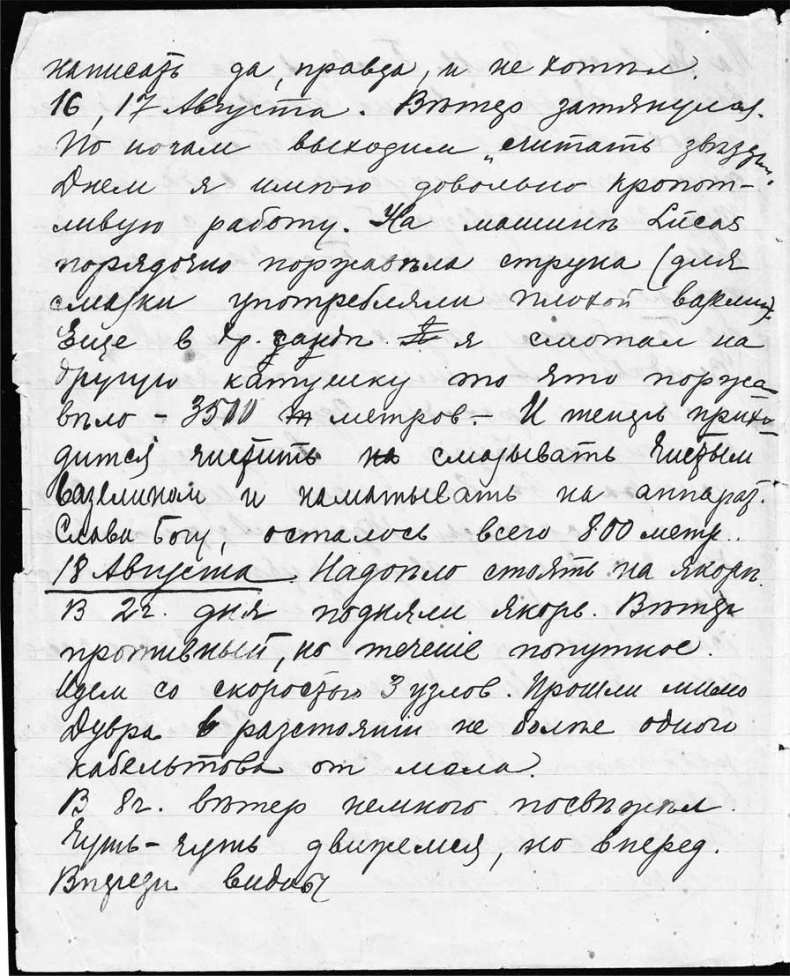 написать да, правда, и не хотѣл.
16, 17 Августа. Вѣтер затянулся.
По ночам выходим „считать звѣзды“.
Днем я имѣю довольно кропот-
ливую работу. На машинѣ Lucas
порядочно поржавѣла струна (для
смазки употребляли плохой вазелин).
Еще в я смотал на
другую катушку то что поржа-
вѣло – 3500 метров. – И теперь прихо-
дится чистить смазывать чистым
вазелином и наматывать на аппарат.
Слава Богу, осталось всего 800 метр..
18 Августа. Надоѣло стоять на якорѣ.
В 2 ч. дня подняли якорь. Вѣтер
противный, но теченіе попутное.
Идем со скоростью 3 узлов. Прошли мимо
Дувра в разстояніи не болѣе одного
кабельтова от мола.
В 8 ч. вѣтер немного посвѣжѣл.
Чуть-чуть движемся, но вперед.
Впереди видны